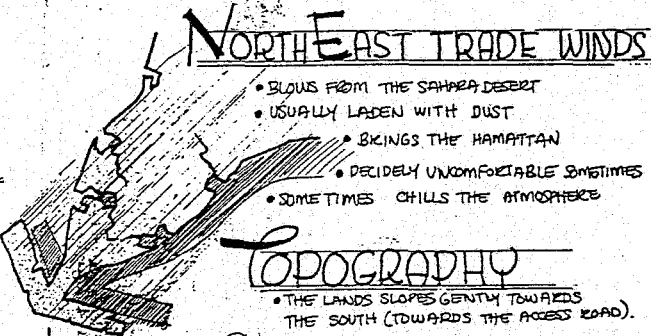 NORTHEAST TRADE WINDS
• BLOWS FROM THE SAHARA DESERT
• USUALLY LADEN WITH DUST
• BRINGS THE HAMATTAN
• DECIDELY UNCOMFORTABLE SOMETIMES
• SOMETIMES CHILLS THE ATMOSPHERE
TOPOGRAPHY
• THE LANDS SLOPES GENTLY TOWARDS
THE SOUTH (TOWARDS THE ACCESS ROAD).